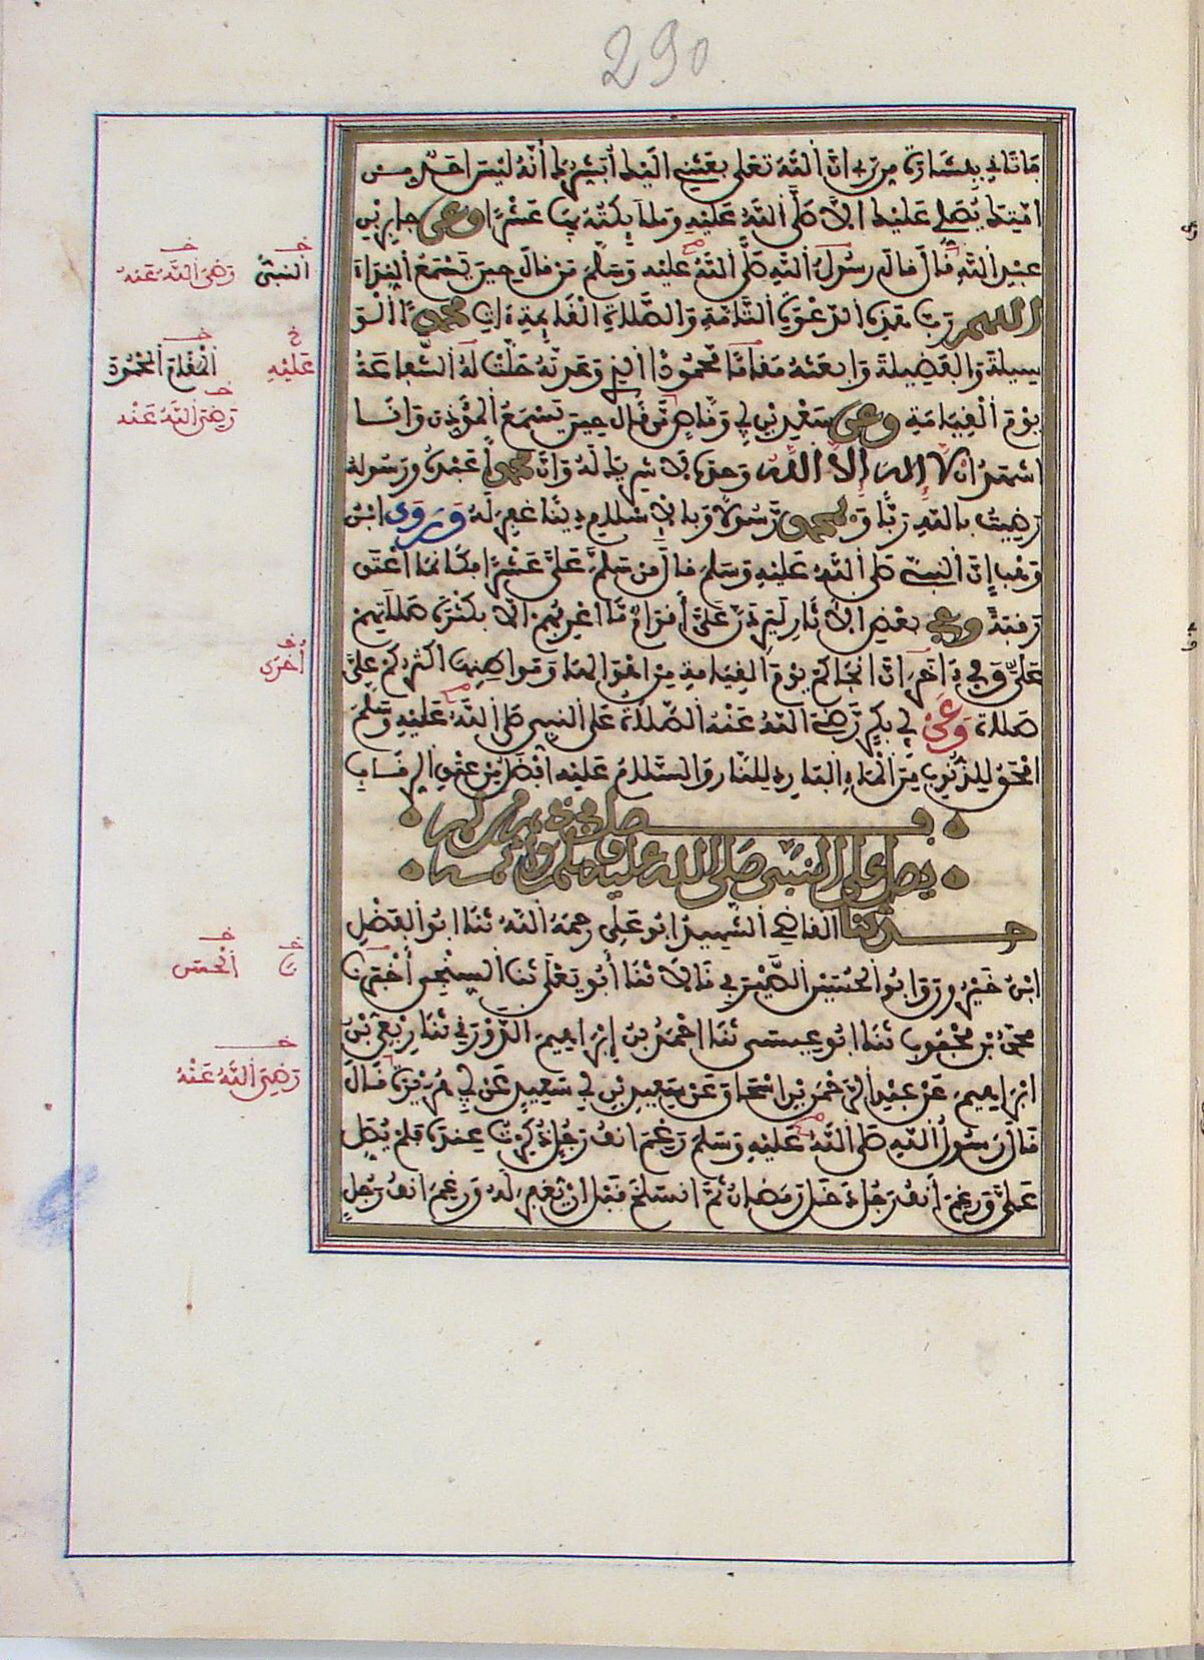 290
فأتاني ببشارة من ربي ان الله تعلى بعثني اليك أبشرك أنه ليس احد من
امتك يصلي عليك الا صلى الله عليه وملائكته بها عشرا وعن جابر بن
عبد الله قال قال رسول الله صلى الله عليه وسلم من قال حين يسمع النداء
اللهم رب هذه الدعوة التامة والصلاة القائمة ات محمدا الو
سيلة والفضيلة وابعثه مقاما محمودا الذي وعدته حلت له الشفاعة
يوم القيامة وعن سعد بن ابي وقاص من قال حين يسمع المؤذن وانا
اشهد ان لا اله الا الله وحده لا شريك له وان محمدا عبده ورسوله
رضيت بالله ربا وبمحمد رسولا وبالاسلام دينا غفر له وروى ابن
وهب ان النبي صلى الله عليه وسلم قال من سلم علي عشرا فكأنما اعتق
رقبة وفي بعض الاثار ليردن علي أقوام ما اعرفهم الا بكثرة صلاتهم
علي وفي اخر ان انجاكم يوم القيامة من اهوالها ومواطنها اكثركم علي
صلاة وعن ابي بكر رضي الله عنه الصلاة على النبي صلى الله عليه وسلم
امحق للذنوب من الماء البارد للنار والسلام عليه افضل من عتق الرقاب
فصل في ذم من لم
يصل على النبي صلى الله عليه وسلم واثمه
حدثنا القاضي الشهيد ابو علي رحمه الله ثنا ابو الفضل
ابن خيرون وابو الحسين الصيرفي قالا ثنا أبو يعلى ثنا السنجي أخبرنا
محمد بن محبوب ثنا ابو عيسى ثنا احمد بن ابراهيم الدورقي ثنا ربعي بن
ابراهيم عن عبد الرحمن بن اسحاق عن سعيد بن ابي سعيد عن ابي هريرة قال
قال رسول الله صلى الله عليه وسلم رغم انف رجل ذكرت عنده فلم يصل
علي ورغم أنف رجل دخل رمضان ثم انسلخ قبل ان يغفر له ورغم انف رجل
النبي رضي الله عنه
عليه المقام المحمود
رضي الله عنه
أخرى
نا الحسن
رضي الله عنه